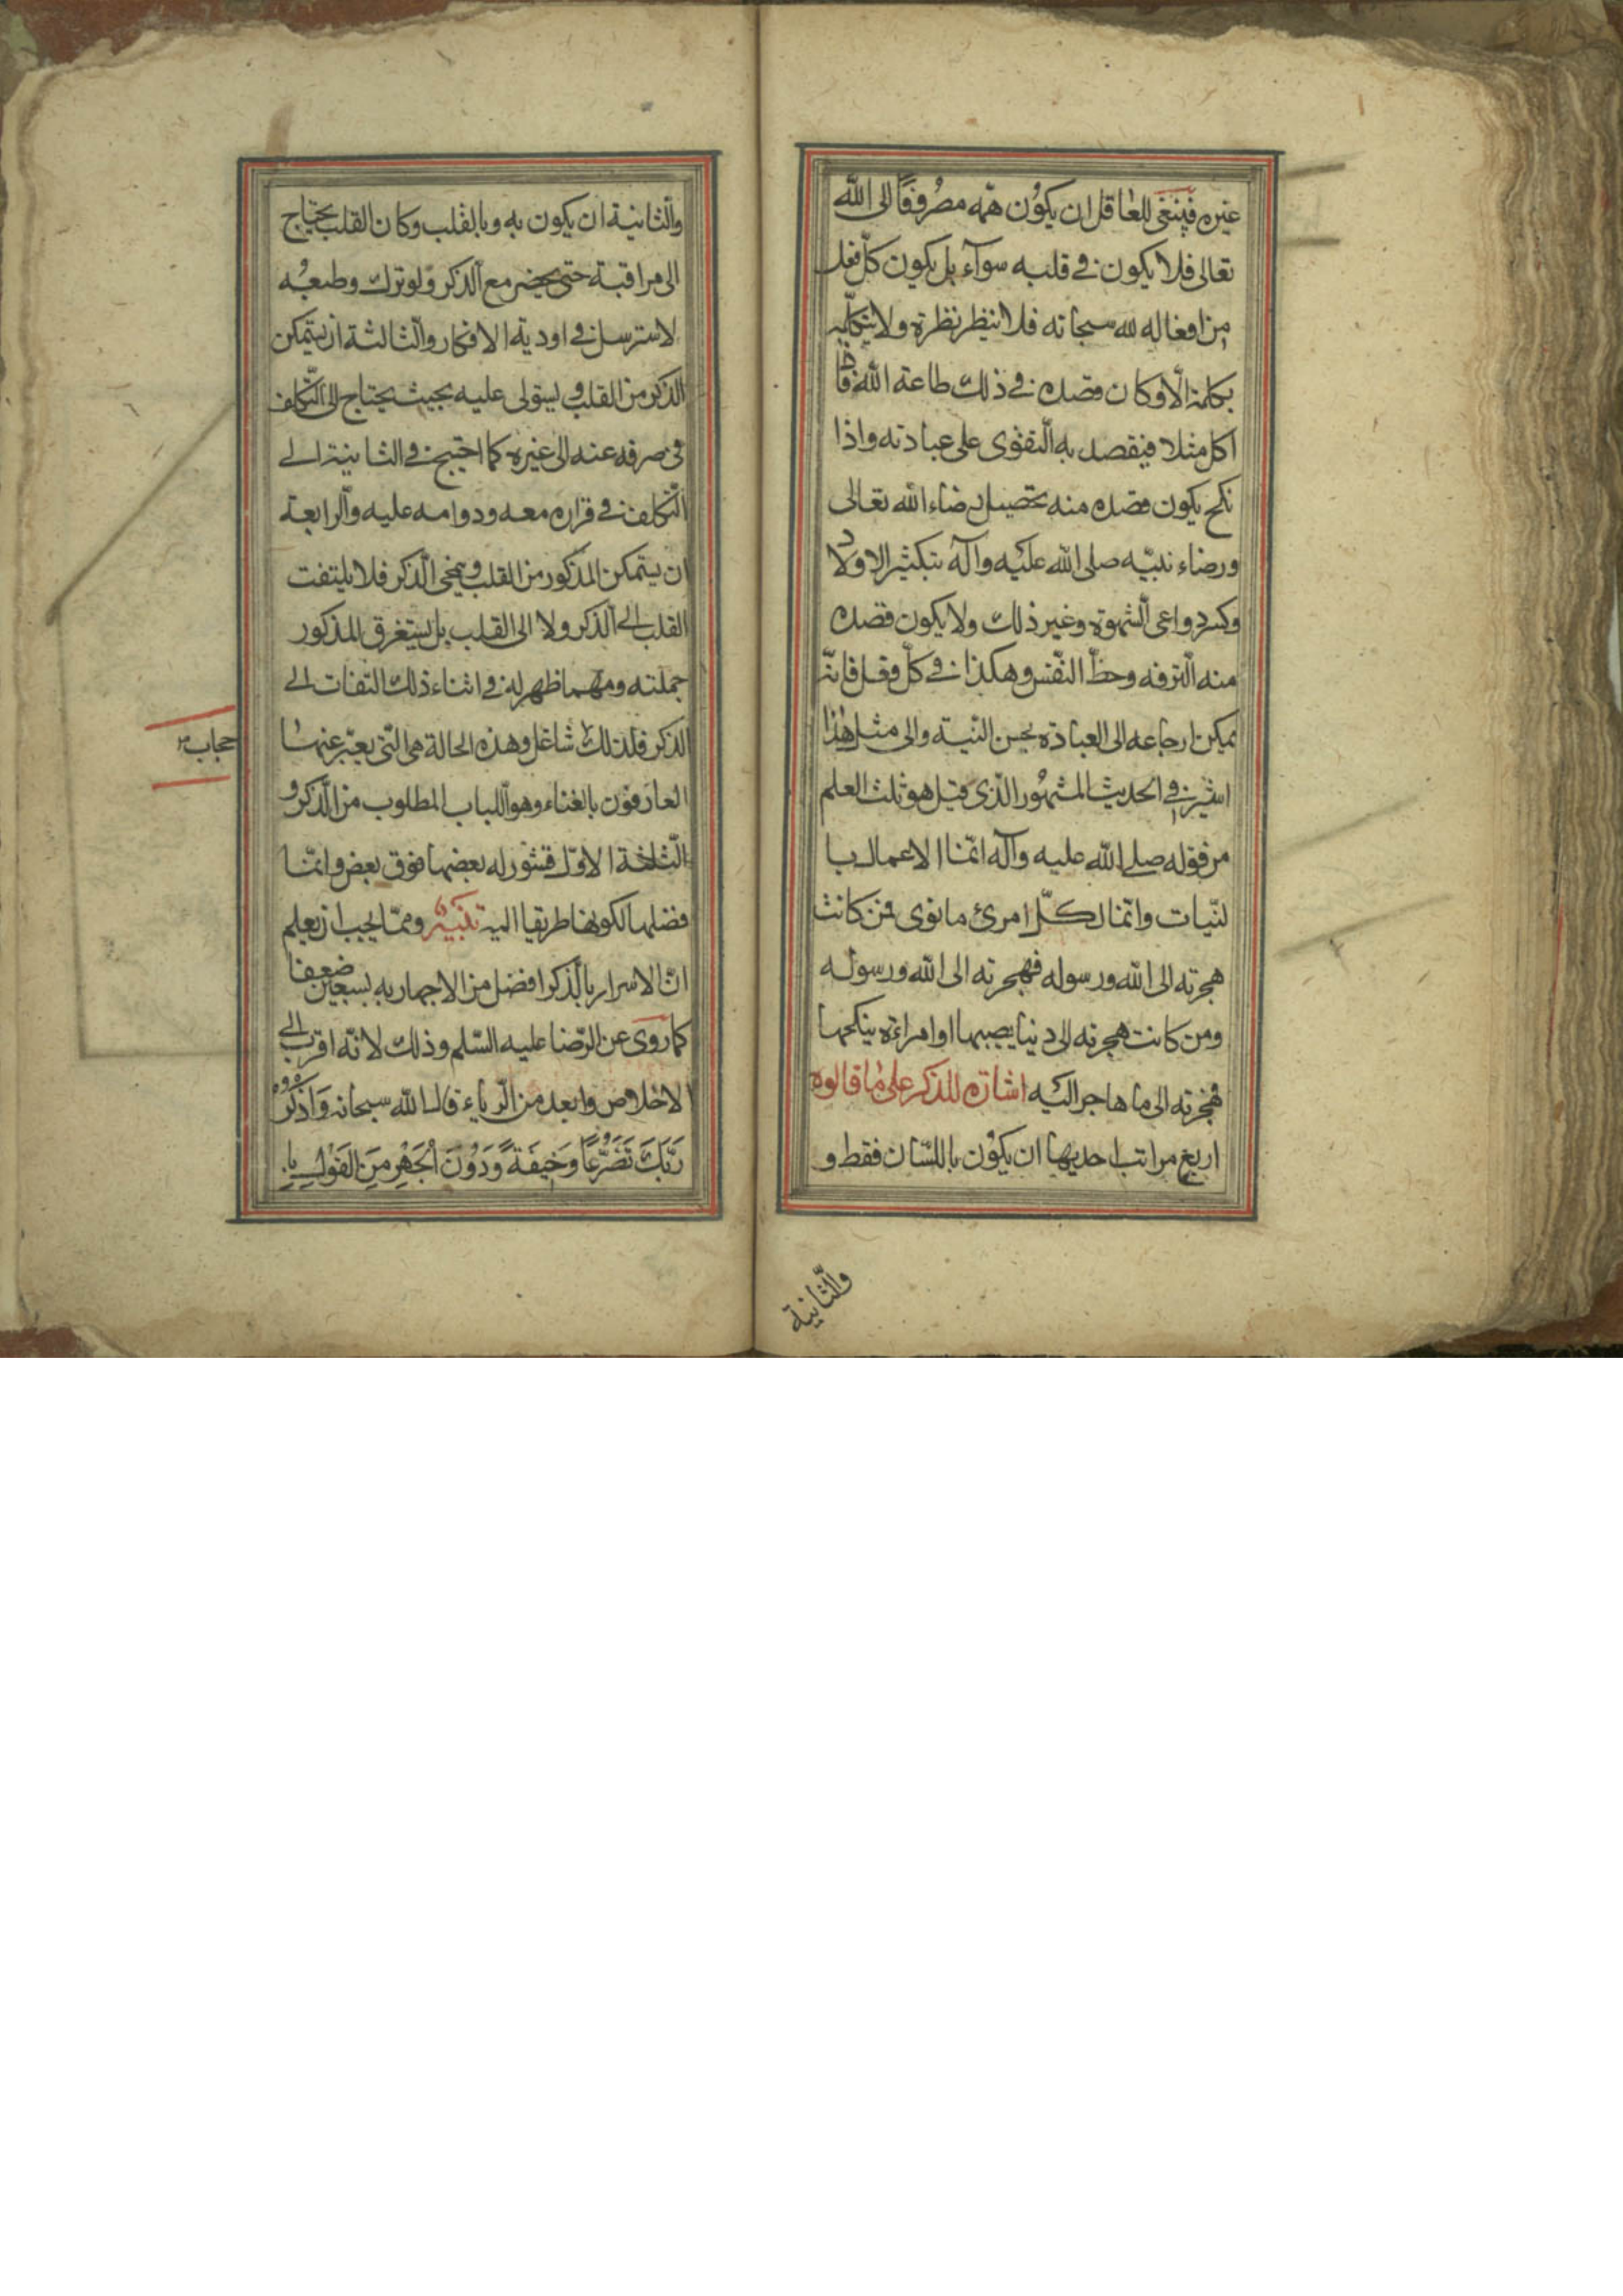 غيره فينبغى للعاقل ان يكون همّه مصروفًا الى الله
تعالى فلا يكون فى قلبه سواه بل يكون كلّ فعل
من افعاله لله سبحانه فلا ينظر نظرة ولا يتكلّم
بكلمة الّا وكان قصده فى ذلك طاعة الله فاذا
اكل مثلا فيقصد به التقوى على عبادته واذا
نكح يكون قصده منه تحصيل رضاء الله تعالى
ورضاء نبيّه صلى الله عليه وآله بتكثير الاولاد
وكسر دواعى الشهوة وغير ذلك ولا يكون قصده
منه الترفه وحظّ النفس وهكذا فى كلّ فعل فانّه
يمكن ارجاعه الى العبادة بحسن النيّة والى مثل هذا
اشير فى الحديث المشهور الّذى قيل هو ثلث العلم
من قوله صلى الله عليه وآله انّما الاعمال با
لنّيات وانّما لكلّ امرئ ما نوى فمن كانت
هجرته الى الله ورسوله فهجرته الى الله ورسوله
ومن كانت هجرته الى دنيا يصيبها او امراءة ينكحها
فهجرته الى ما هاجر اليه اشارة للذكر على ما قالوه
اربع مراتب احديها ان يكون باللسّان فقط و
والثّانية
والثانية ان يكون به وبالقلب وكان القلب يحتاج
الى مراقبة حتى يحضر مع الذكر ولو ترك وطبعه
لاسترسل فى اودية الافكار والثالثة ان يتمكن
الذكر من القلب ويستولى عليه بحيث يحتاج الى التّكلف
فى صرفه عنه الى غيره كما احتيج فى الثانية الى
التّكلف فى قراره معه ودوامه عليه والرابعة
ان يتمكن المذكور من القلب ويمحى الذّكر فلا يلتفت
القلب الى الذكر ولا الى القلب بل يستغرق المذكور
جملته ومهما ظهر له فى اثناء ذلك التفات الى
الذكر فذلك شاغل وهذه الحالة هى الّتى يعبّر عنها
حجاب
العارفون بالفناء وهو اللباب المطلوب من الذّكر و
الثّلاثة الاوّل قشور له بعضها فوق بعض وانّما
فضلها لكونها طريقا اليه تنبيه وممّا يجب ان يعلم
انّ الاسرار بالذّكر افضل من الاجهار به بسبعين ضعفا
كما روى عن الرّضا عليه السّلم وذلك لانّه اقرب الى
الاخلاص وابعد من الرياء قال الله سبحانه وَاذْكُرْ
رَبَّكَ تَضَرُّعًا وَخِيفَةً وَدُوْنَ الْجَهْرِ مِنَ الْقَوْلِ بِا